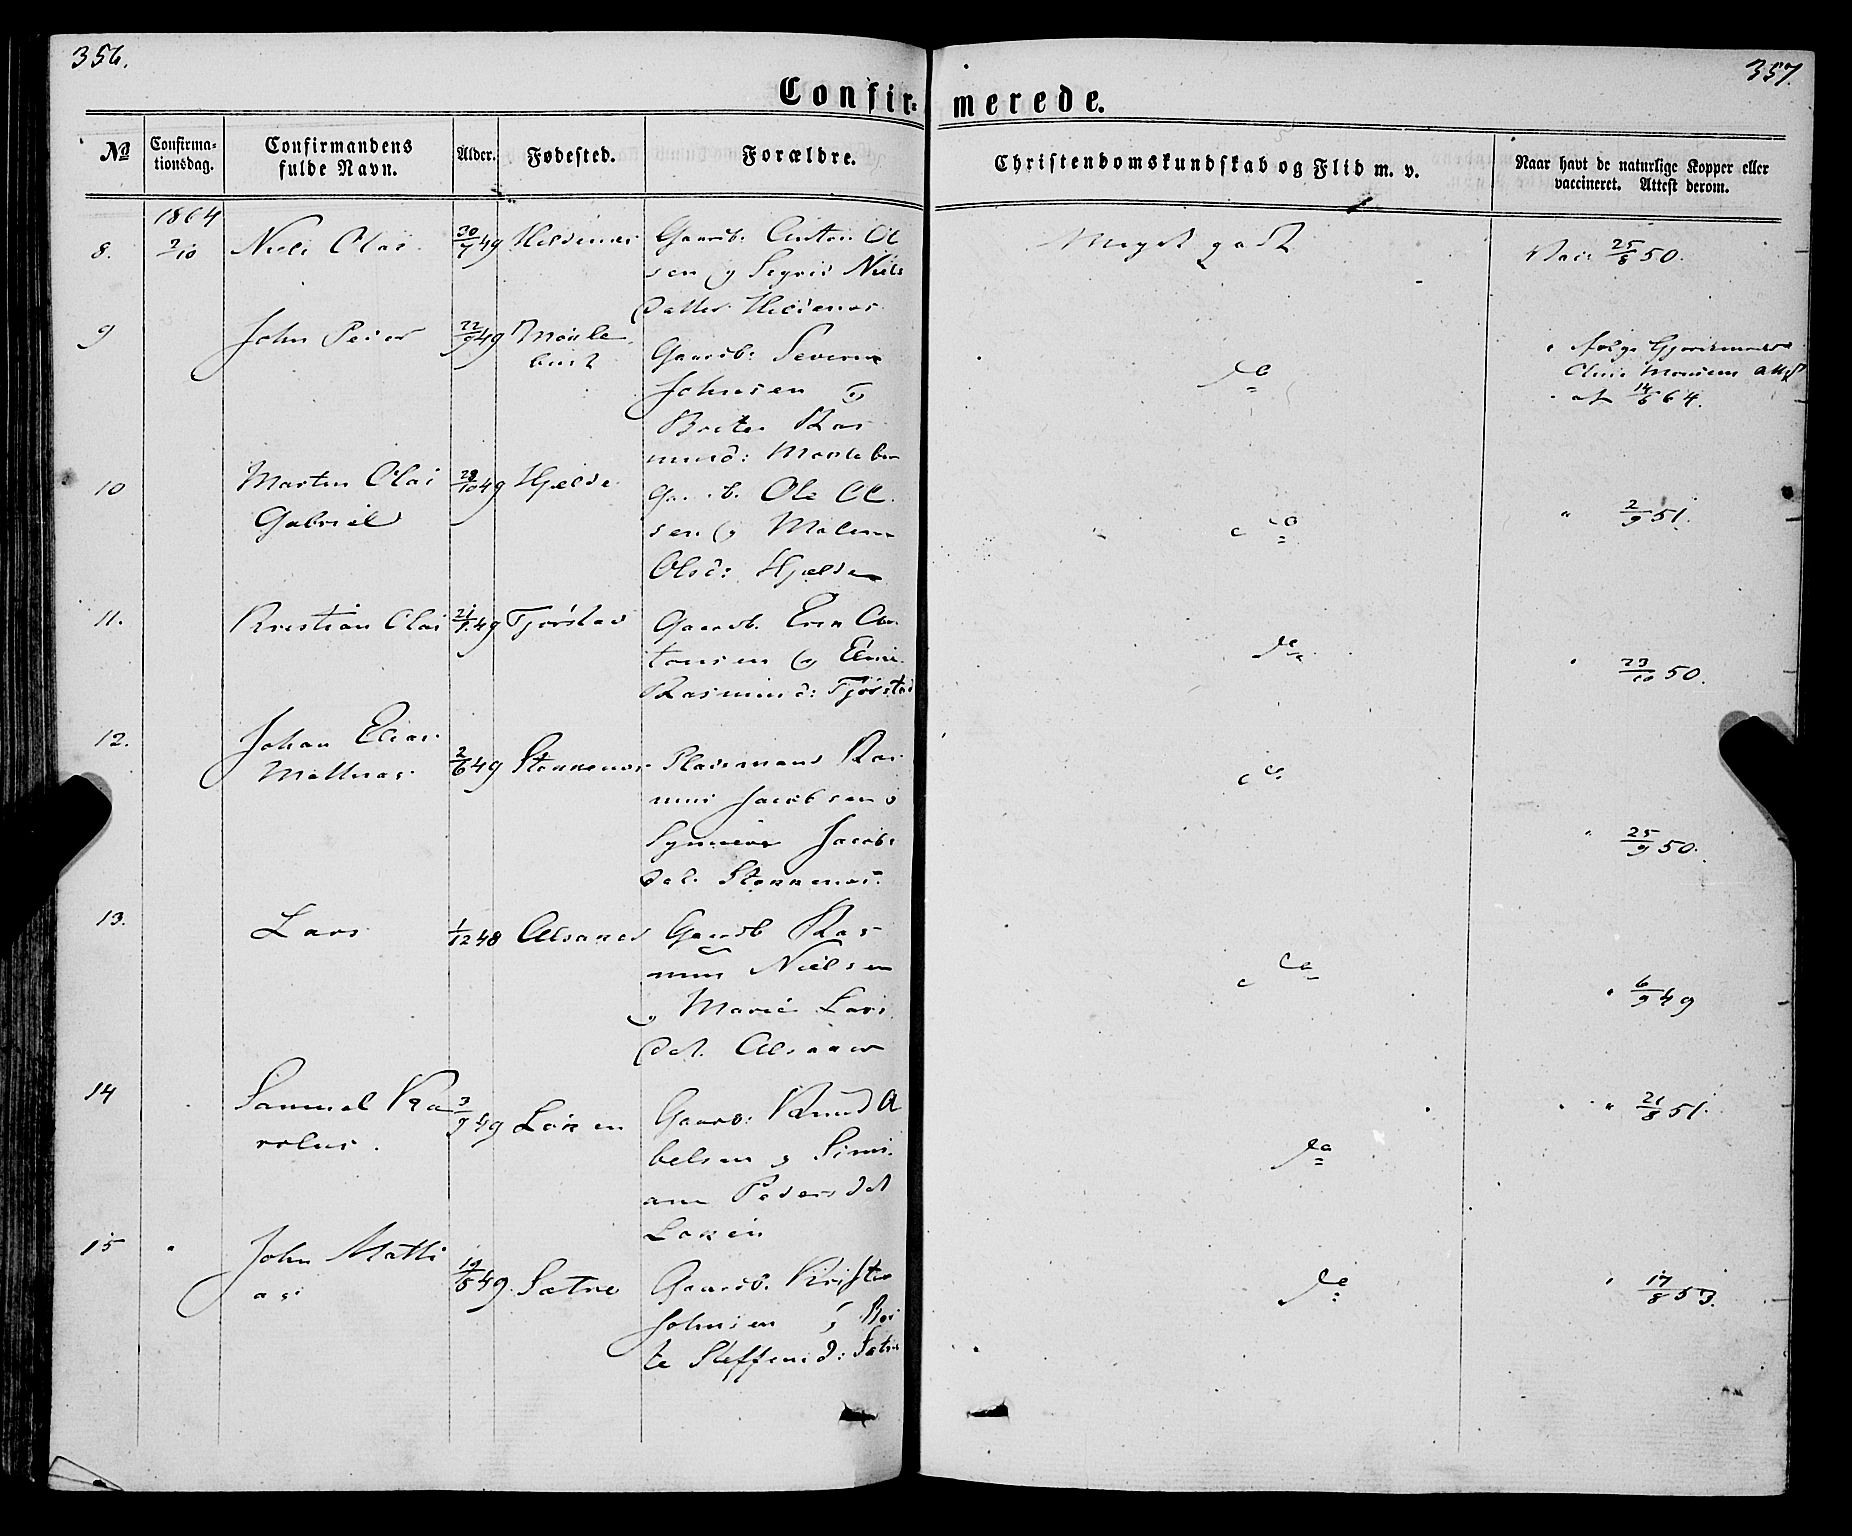 356.
357.
Confir-merede.
No
Confirma-
tionsdag.
Confirmandens
fulde Navn.
Alder.
Fødested.
Forældre.
Christendomskundskab og Flid m. v.
Naar havt de naturlige Kopper eller
vaccineret. Attest derom.
1864
8. 2/10 Niels Olai 30/7 49 Gaardb. Anton Ol
sen og Nils
datter
Meget godt
Vacc 25/8 50.
9 John Peder 22/9 49 Gaardb: Severin
Johnsen og
Brite Ras
musd:
do
af 14/6 64.
10 Martin Olai
Gabriel
29/10 49 Hjelde
Gaardb. Ole Ol
sen og Malene
Olsd: Hjelde
do
" 2/9 51.
11. Kristian Olai 21/7 49 Tjørstad Gaardb.
tonsen og
Rasmusd: Tjørstad
do
" 23/10 50.
12. Johan Elias
Mathias
2/6 49 Stennenes Pladsmand Ras
mus Jacobsen og
Jacobs
dat. Stennenes.
do
" 25/9 50.
13. Lars 1/12 48 Alsaner Gaardb Ras
mus Nielsen
og Marie Lars
dat. Alsaner
do
" 6/9 49
14 Samuel Ka
rolus.
3/9 49 Løken Gaardb: Knud A
belsen og Simi
ane Pedersdat
Løken
do
" 21/8 51.
15 John Matti
as
19/5 49. Sætre Gaardb. Kristen
Johnsen og Bri
te Steffensd: Sætre
do
" 17/8 53.